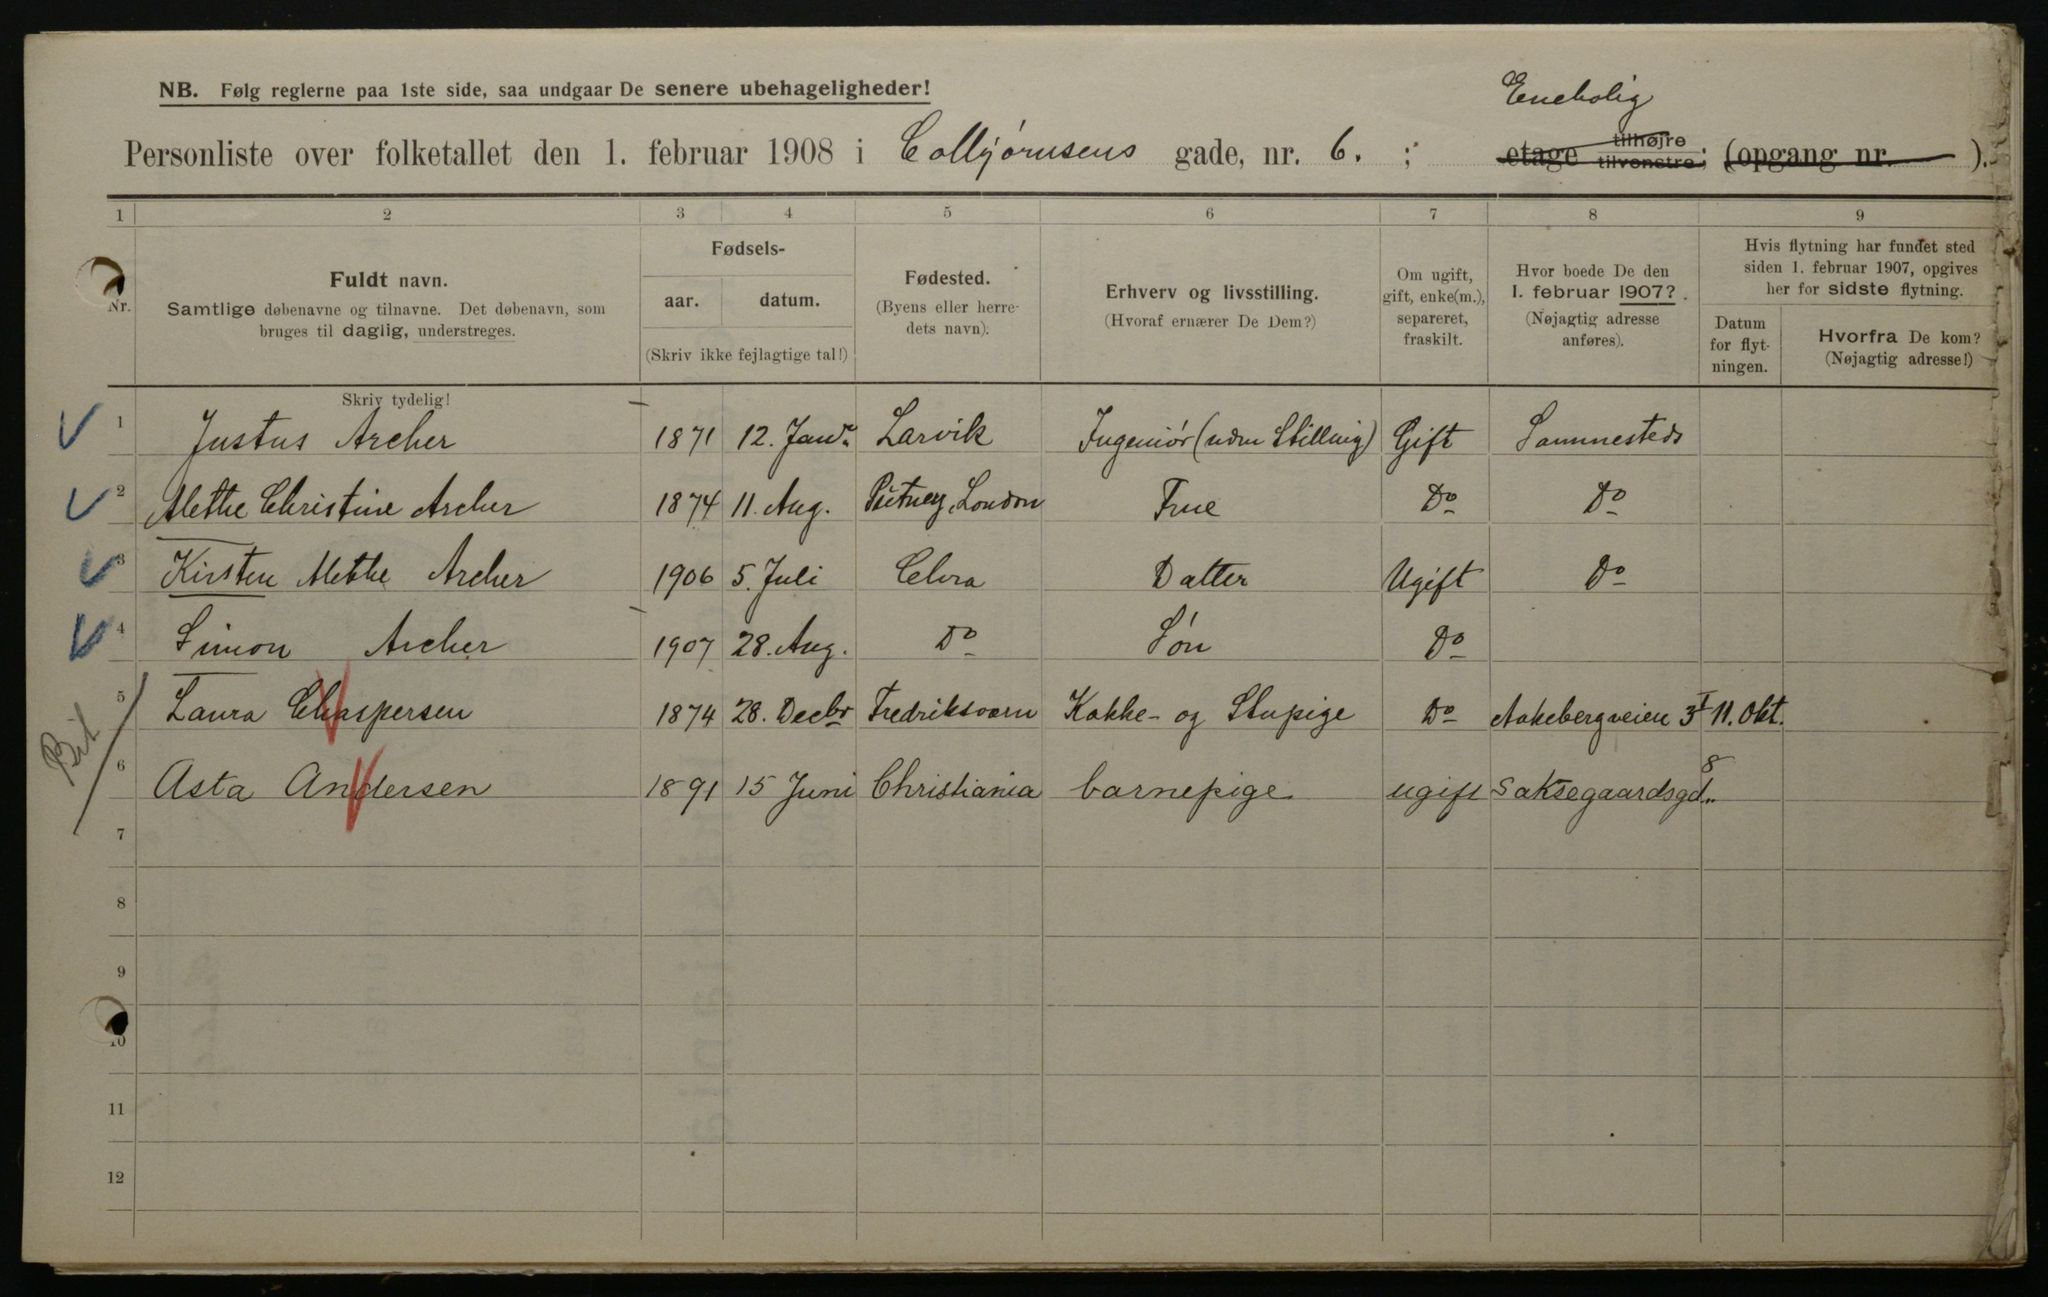 NB. Følg reglerne paa 1ste side, saa undgaar De senere ubehageligheder!
Enebolig
Personliste over folketallet den 1. februar 1908 i Colbjørnsens gade, nr. 6. ; etage tilhøjre tilvenstre; (opgang nr. ).
1 2 3 4 5 6 7 8 9
Nr.
Fuldt navn.
Samtlige døbenavne og tilnavne. Det døbenavn, som
bruges til daglig, understreges.
Skriv tydelig!
Fødsels-
aar. datum.
(Skriv ikke fejlagtige tal!)
Fødested.
(Byens eller herre-
dets navn).
Erhverv og livsstilling.
(Hvoraf ernærer De Dem?)
Om ugift,
gift, enke(m.),
separeret,
fraskilt.
Hvor boede De den
1. februar 1907?
(Nøjagtig adresse
anføres).
Hvis flytning har fundet sted
siden 1. februar 1907, opgives
her for sidste flytning.
Datum
for flyt-
ningen.
Hvorfra De kom?
(Nøjagtig adresse!)
1 Justus Archer 1871 12. Janr. Larvik Ingeniør (uden Stilling) Gift Sammesteds
2 Methe Christine Archer 1874 11. Aug. Putney, London Frue Do Do
3 Kirsten Methe Archer 1906 5. Juli Chra Datter Ugift Do
4 Simon Archer 1907 28. Aug. Do Søn Do
5 Laura Chaspersen 1874 28. Decbr Fredriksværn Kokke- og Stupige Do Aakebergveien 3 I 11. Okt.
6 Asta Andersen 1891 15 Juni Christiania barnepige ugift Saksegaardsgd. 8
7
8
9
10
11
12